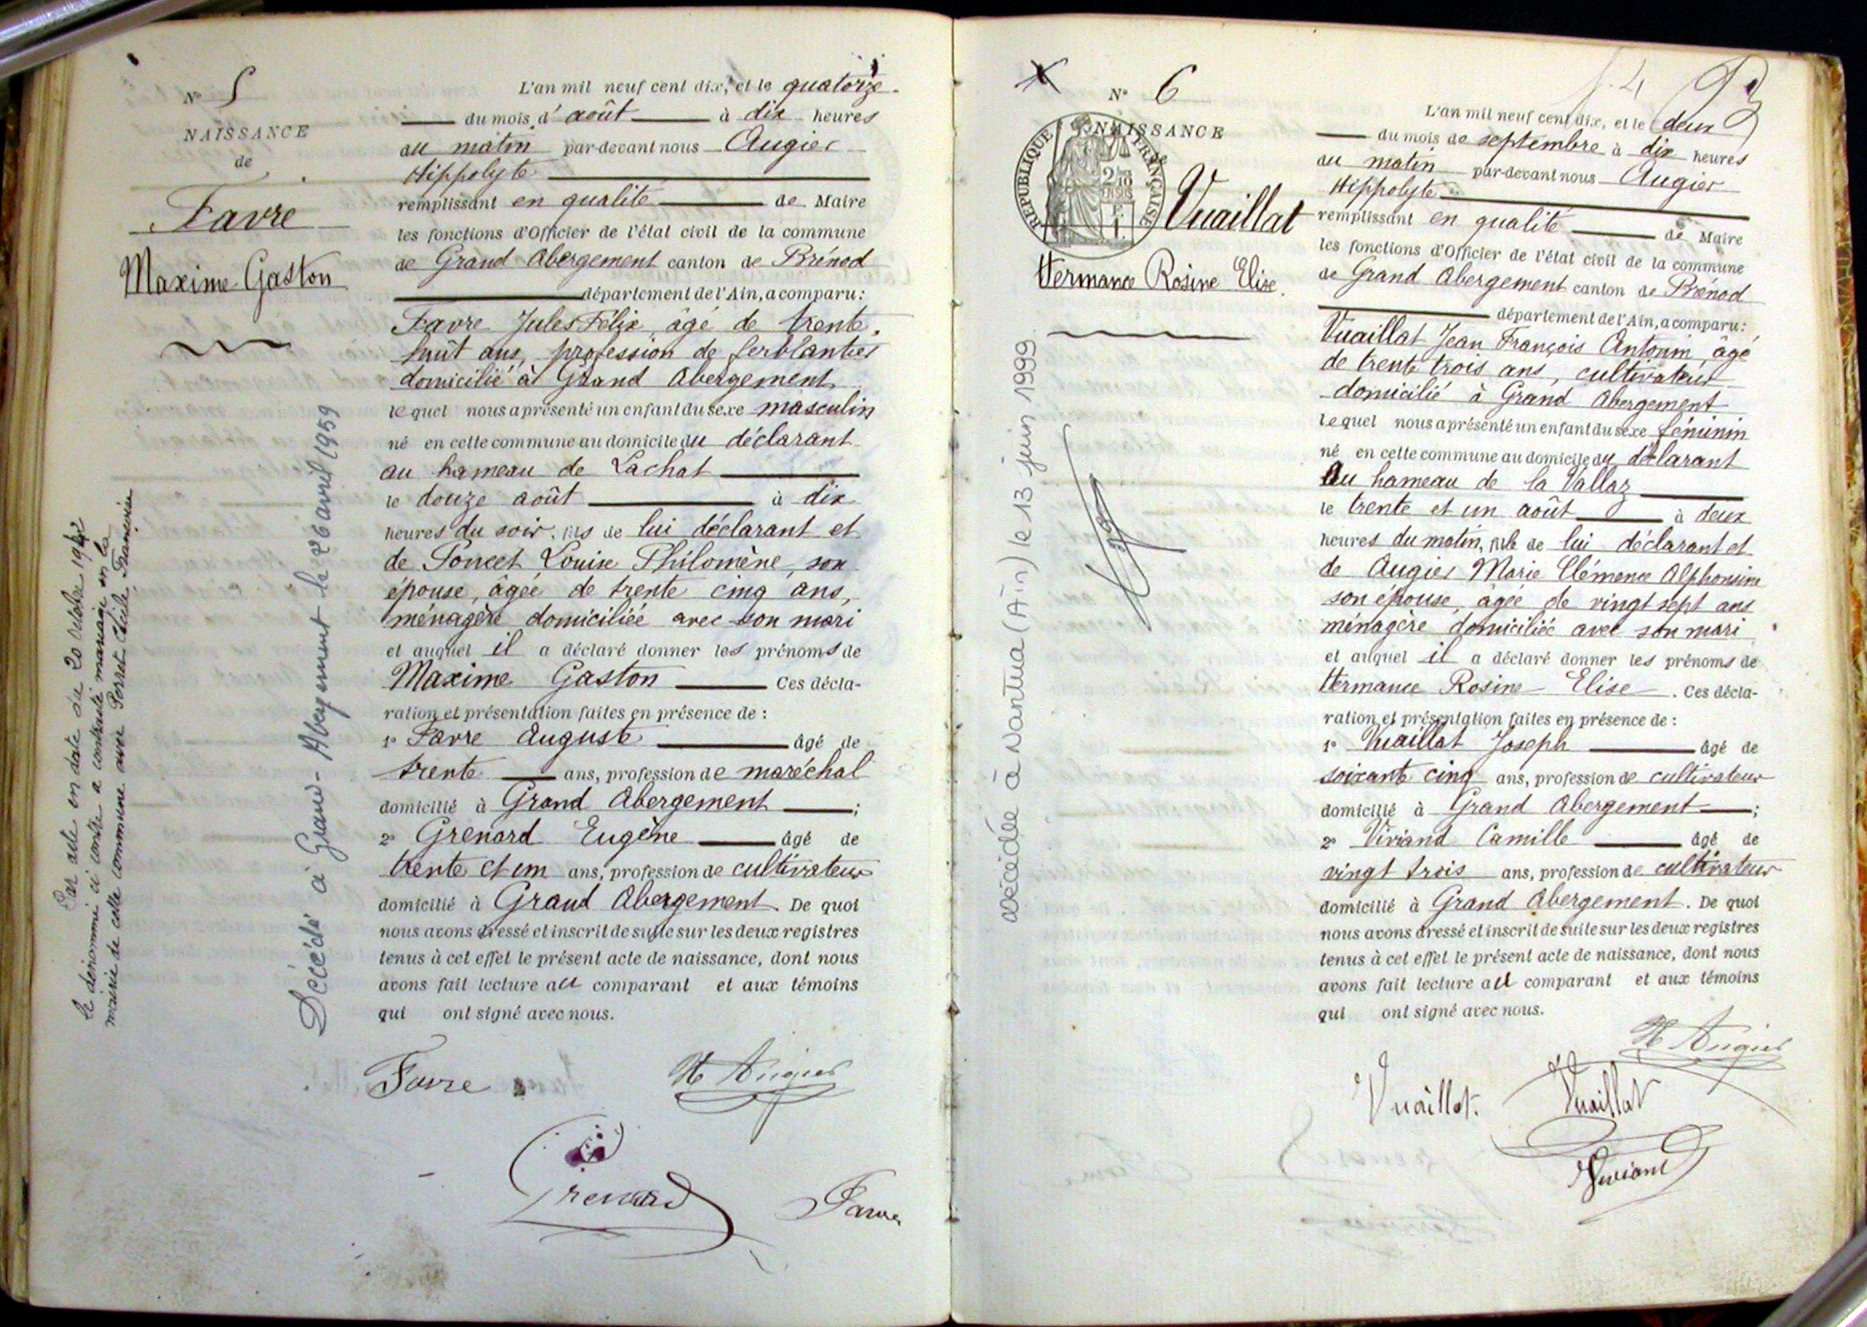 N° 5
NAISSANCE
de
Favre
Maxime Gaston
Par acte en date du 20 octobre
le dénommé ci contre a contracté mariage en la
mairie de cette commune avec Perret Cécile
Décédé à Grand-Abergement le 26 avril 1959
L'an mil neuf cent dix, et le quatorze
du mois d'août à dix heures
du matin par-devant nous Augier
Hippolyte
remplissant en qualité de Maire
les fonctions d'Officier de l'état civil de la commune
de Grand Abergement canton de Brénod
département de l'Ain, a comparu :
Favre Jules Félix, âgé de trente
huit ans, profession de ferblantier
domicilié à Grand Abergement
lequel nous a présenté un enfant du sexe masculin
né en cette commune au domicile du déclarant
au hameau de Lachat
le douze août à dix
heures du soir, fils de lui déclarant et
de Poncet Louise Philomène, son
épouse, âgée de trente cinq ans,
ménagère domiciliée avec son mari
et auquel il a déclaré donner les prénoms de
Maxime Gaston Ces décla-
ration et présentation faites en présence de :
1° Favre Auguste âgé de
trente ans, profession de maréchal
domicilié à Grand Abergement ;
2° Grenard Eugène âgé de
trente et un ans, profession de cultivateur
domicilié à Grand Abergement. De quoi
nous avons dressé et inscrit de suite sur les deux registres
tenus à cet effet le présent acte de naissance, dont nous
avons fait lecture au comparant et aux témoins
qui ont signé avec nous.
Favre H Augier
Grenard Favre
N° 6
NAISSANCE
RÉPUBLIQUE FRANÇAISE
Vuaillat
Hermance Rosine Elise
décédée à Nantua (Ain) le 13 juin 1999
L'an mil neuf cent dix, et le deux
du mois de septembre à dix heures
du matin par-devant nous Augier
Hippolyte
remplissant en qualité de Maire
les fonctions d'Officier de l'état civil de la commune
de Grand Abergement canton de Brénod
département de l'Ain, a comparu :
Vuaillat Jean François Antonin, âgé
de trente trois ans, cultivateur
domicilié à Grand Abergement
lequel nous a présenté un enfant du sexe féminin
né en cette commune au domicile du déclarant
au hameau de la Vallaz
le trente et un août à deux
heures du matin, fille de lui déclarant et
de Augier Marie Clémence Alphonsine
son épouse, agée de vingt sept ans
ménagère domiciliée avec son mari
et auquel il a déclaré donner les prénoms de
Hermance Rosine Elise. Ces décla-
ration et présentation faites en présence de :
1° Vuaillat Joseph âgé de
soixante cinq ans, profession de cultivateur
domicilié à Grand Abergement ;
2° Viviand Camille âgé de
vingt trois ans, profession de cultivateur
domicilié à Grand Abergement. De quoi
nous avons dressé et inscrit de suite sur les deux registres
tenus à cet effet le présent acte de naissance, dont nous
avons fait lecture au comparant et aux témoins
qui ont signé avec nous.
H Augier
Vuaillat. Vuaillat
Viviand